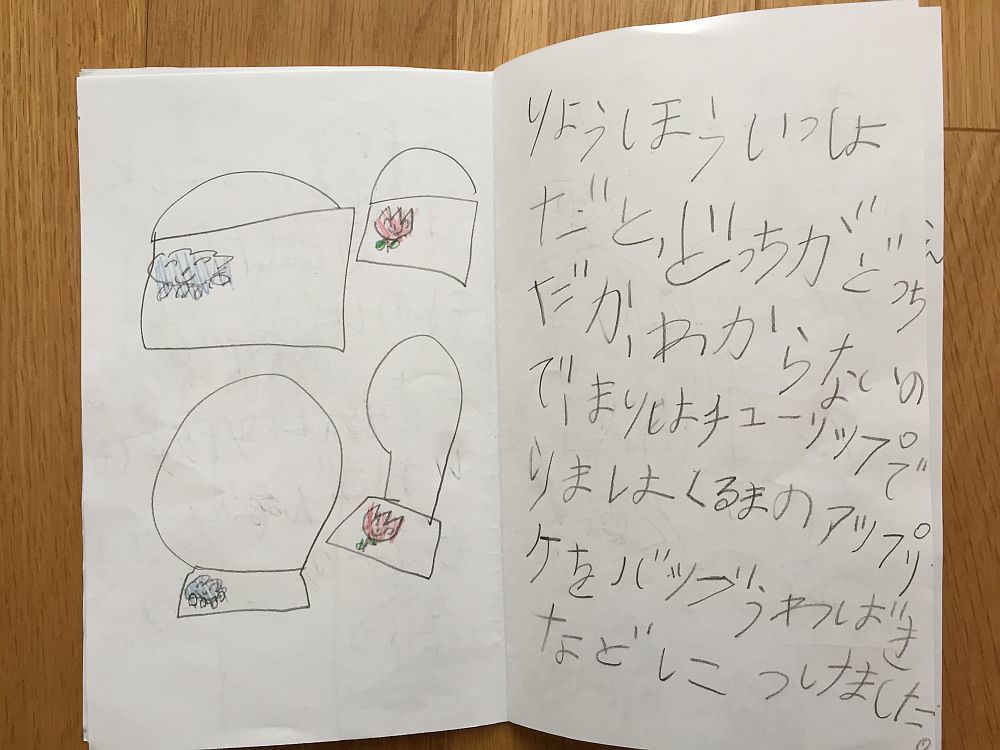 りょうほういっしょ
だと、どっちがどっち
だか、わからないの
で、まりはチューリップで
りまはくるまのアップリ
ケをバッグ、うわばき
などにつけました。